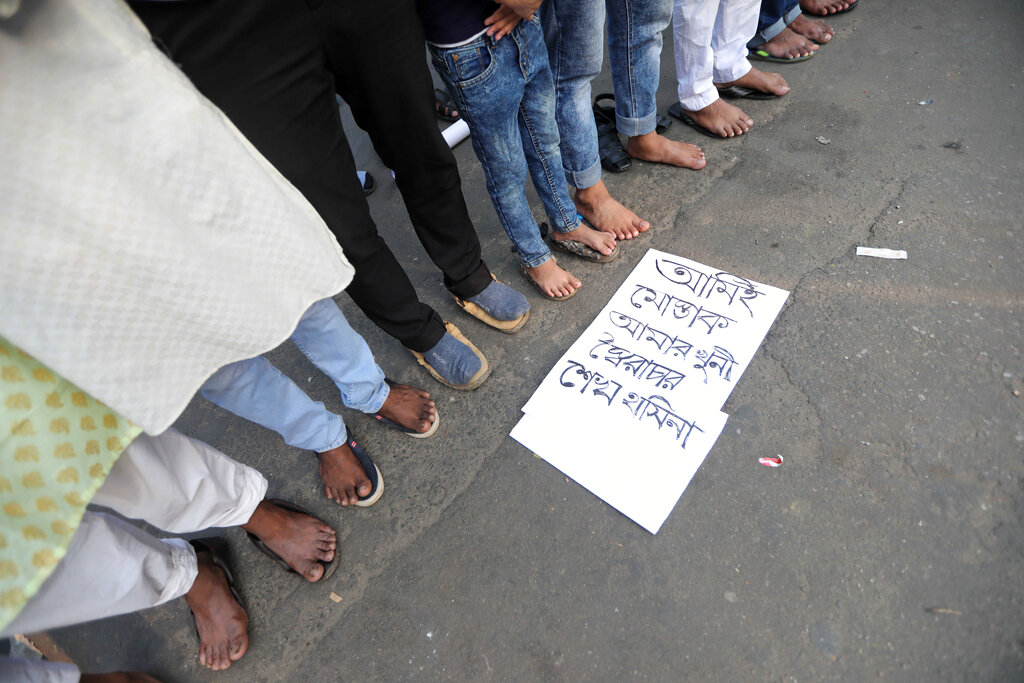 আমিই
মোস্তাক
আমার খুনী
স্বৈরাচার
শেখ হাসিনা